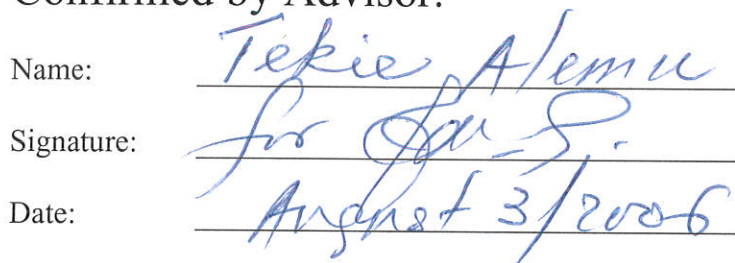 Confirmed by Advisor:
Name: Tekie Alemu
Signature: for
Date: August 3/2006